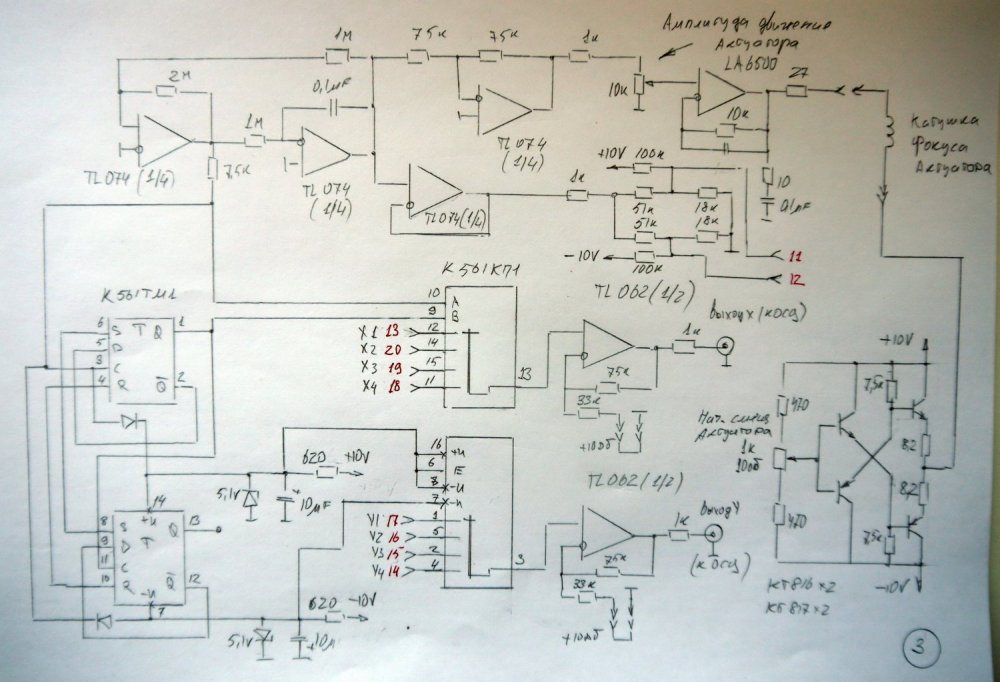 Амплитуда движения
Актуатора
LA6500
1М
75к
75к
1к
27
2М
0,1μF
10к
10к
1М
TL074
(1/4)
TL074 (1/4)
7,5к
TL074
(1/4)
TL074(1/4)
Катушка
Фокуса
Актуатора
+10V
100к
10
0,1μF
1к
51к
18к
51к
18к
-10V
100к
11
12
К561КП1
TL062(1/2)
К561ТМ1
выход X (к осц)
10 A
9 B
X1 13 12
X2 20 14
X3 19 15
X4 18 11
13
1к
75к
33к
+10дб
6 S T Q 1
5 D
3 C
4 R Q 2
+10V
7,5к
470
Нач. смещ
Актуатора
1к
8,2
8,2
470
7,5к
-10V
КТ816 x2
КТ817 x2
620 +10V
5,1v
+
10μF
16 +U
6 E
8 -U
7 -U
TL062(1/2)
Y1 17 1
Y2 16 5
Y3 15 2
Y4 14 4
3
выход Y
(к осц)
1к
75к
33к
+10дб
14
+U
8 S Q 13
9 D T
11 C
10 R Q 12
-U
7
620 -10V
5,1v
+10μ
3